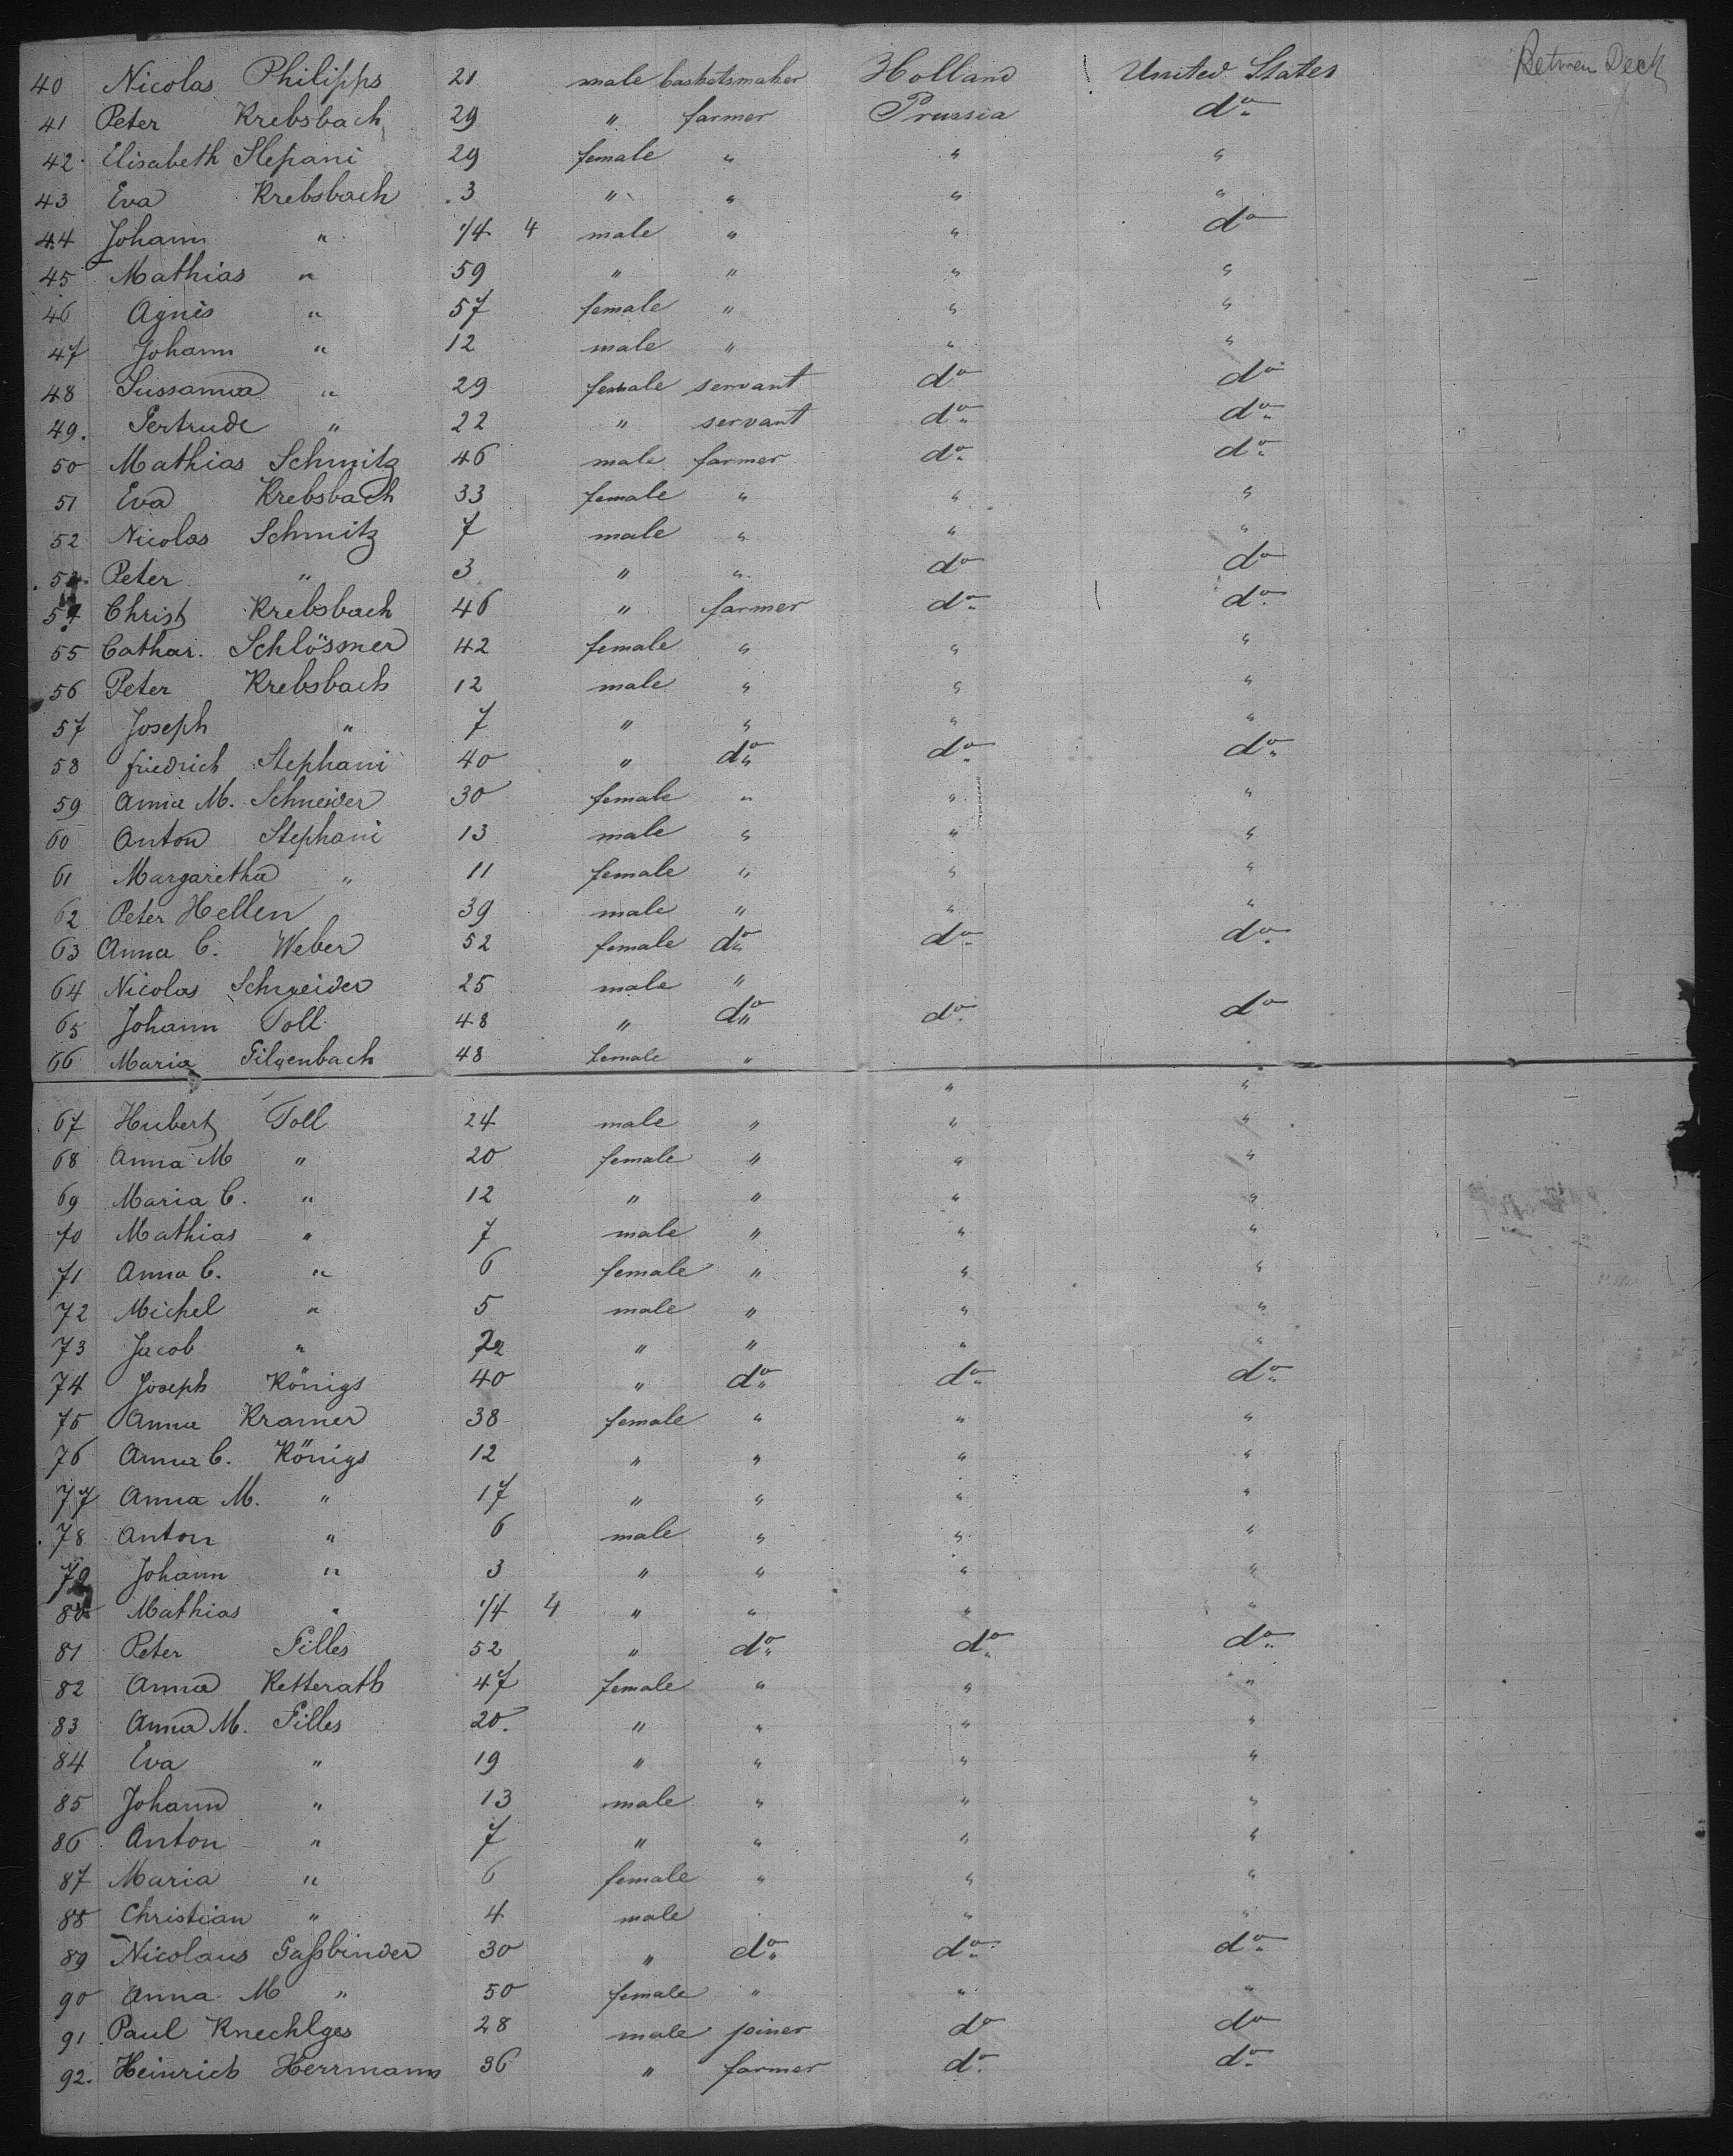 40 Nicolas Philipps 21 male basketsmaker Holland United States Between Deck
41 Peter Krebsbach 29 " farmer Prussia do
42 Elisabeth Stepani 29 female " " "
43 Eva Krebsbach 3 " " " "
44 Johann " 1/4 4 male " " do
45 Mathias " 59 " " " "
46 Agnes " 57 female " " "
47 Johann " 12 male " " "
48 Sussanna " 29 female servant do do
49. Gertrude " 22 " servant do do
50 Mathias Schmitz 46 male farmer do do
51 Eva Krebsbach 33 female " " "
52 Nicolas Schmitz 7 male " " "
53. Peter " 3 " " do do
54 Christ Krebsbach 46 " farmer do do
55 Cathar. Schlössner 42 female " " "
56 Peter Krebsbach 12 male " " "
57 Joseph " 7 " " " "
58 friedrich Stephani 40 " do do do
59 Anna M. Schneider 30 female " " "
60 Anton Stephani 13 male " " "
61 Margaretha " 11 female " " "
62 Peter Hellen 39 male " " "
63 Anna C. Weber 52 female do do do
64 Nicolas Schneider 25 male "
65 Johann Toll 48 " do do do
66 Maria Gilgenbach 48 female " " "
67 Hubert Toll 24 male " " "
68 Anna M " 20 female " " "
69 Maria C. " 12 " " " "
70 Mathias " 7 male " " "
71 Anna C. " 6 female " " "
72 Michel " 5 male " " "
73 Jacob " " " " "
74 Joseph Königs 40 " do do do
75 Anna Kramer 38 female " " "
76 Anna C. Königs 12 " " " "
77 Anna M. " 17 " " " "
78 Anton " 6 male " " "
79 Johann " 3 " " " "
80 Mathias " 1/4 4 " " " "
81 Peter Gilles 52 " do do do
82 Anna Retterath 47 female " " "
83 Anna M. Gilles 20. " " " "
84 Eva " 19 " " " "
85 Johann " 13 male " " "
86 Anton " 7 " " " "
87 Maria " 6 female " " "
88 Christian " 4 male " "
89 Nicolaus Gaßbinder 30 " do do do
90 Anna M " 50 female " " "
91. Paul Knechtges 28 male joiner do do
92. Heinrich Herrmann 36 " farmer do do